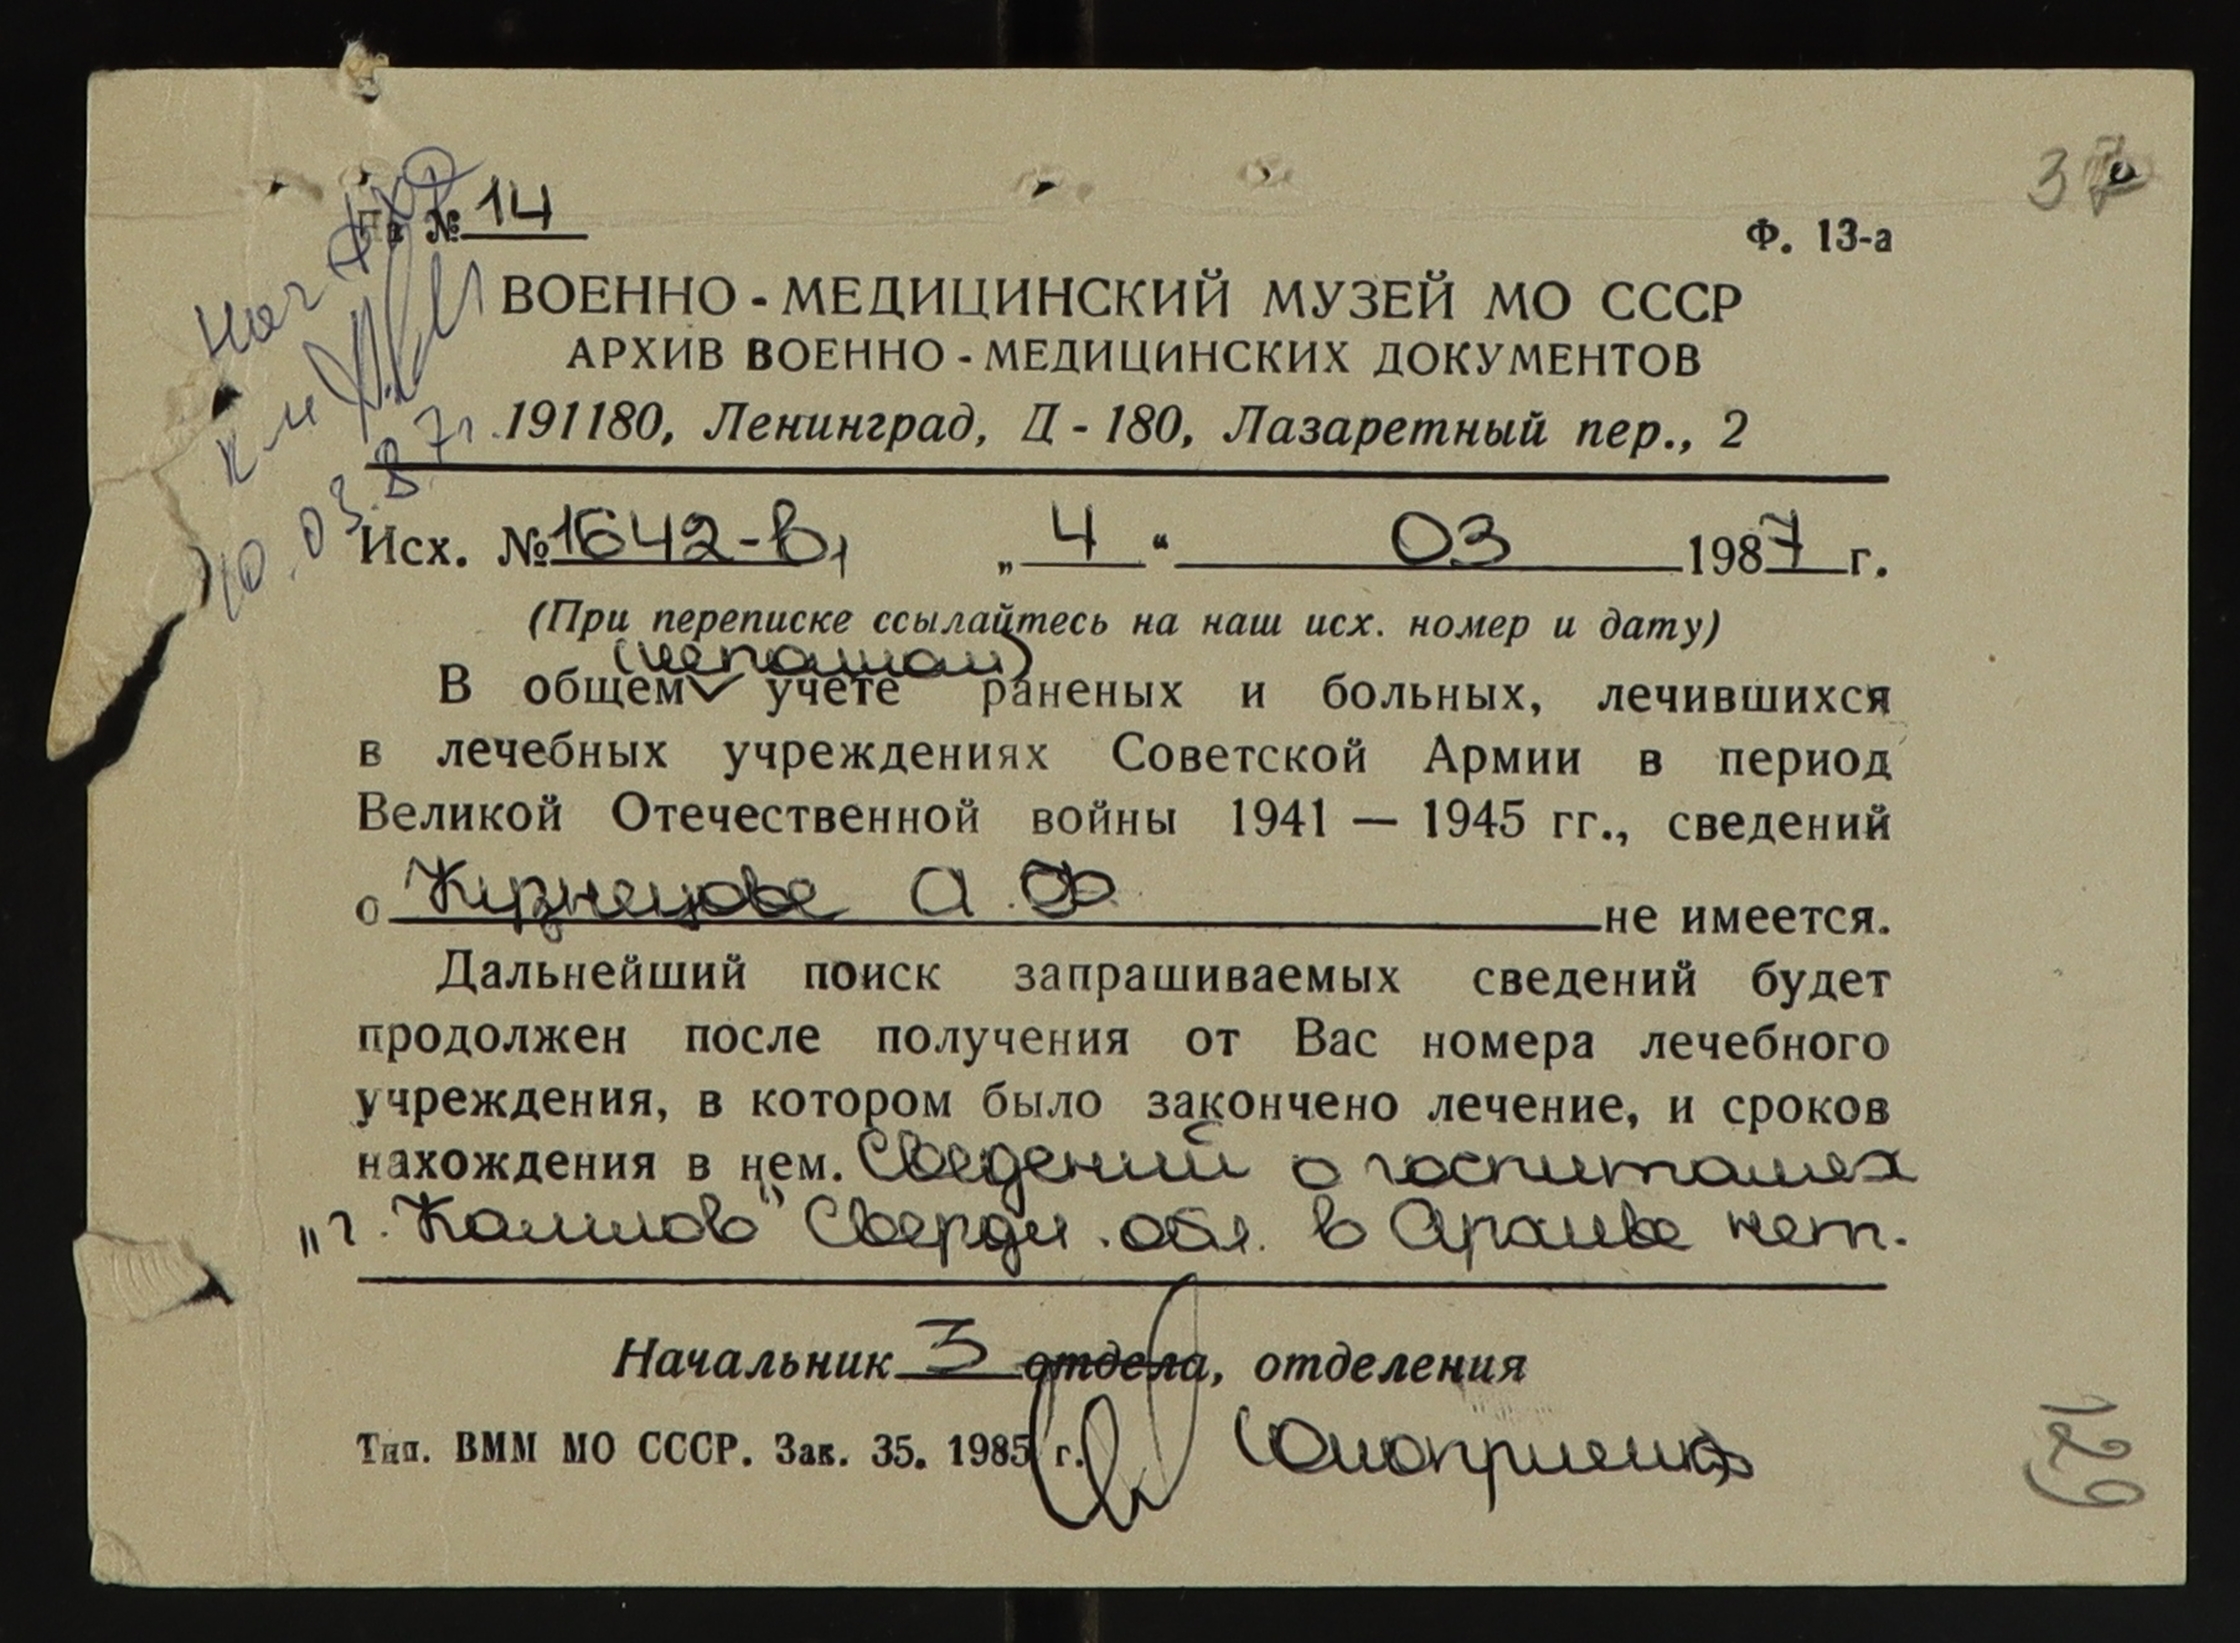 37
На № 14
Ф. 13-а
ВОЕННО - МЕДИЦИНСКИЙ МУЗЕЙ МО СССР
АРХИВ ВОЕННО - МЕДИЦИНСКИХ ДОКУМЕНТОВ
191180, Ленинград, Д - 180, Лазаретный пер., 2
Нач
к и
10.03.87г.
Исх. № 1642-в, „ 4 “ 03 1987 г.
(При переписке ссылайтесь на наш исх. номер и дату)
(неполном)
В общем учете раненых и больных, лечившихся
в лечебных учреждениях Советской Армии в период
Великой Отечественной войны 1941 — 1945 гг., сведений
о Кузнецове А. Ф. не имеется.
Дальнейший поиск запрашиваемых сведений будет
продолжен после получения от Вас номера лечебного
учреждения, в котором было закончено лечение, и сроков
нахождения в нем. Сведений о госпиталях
„г. Камшлов" Свердл. обл. в Архиве нет.
Начальник 3 отдела, отделения
Тип. ВММ МО СССР. Зак. 35. 1985 г.
(Оноприенко)
129